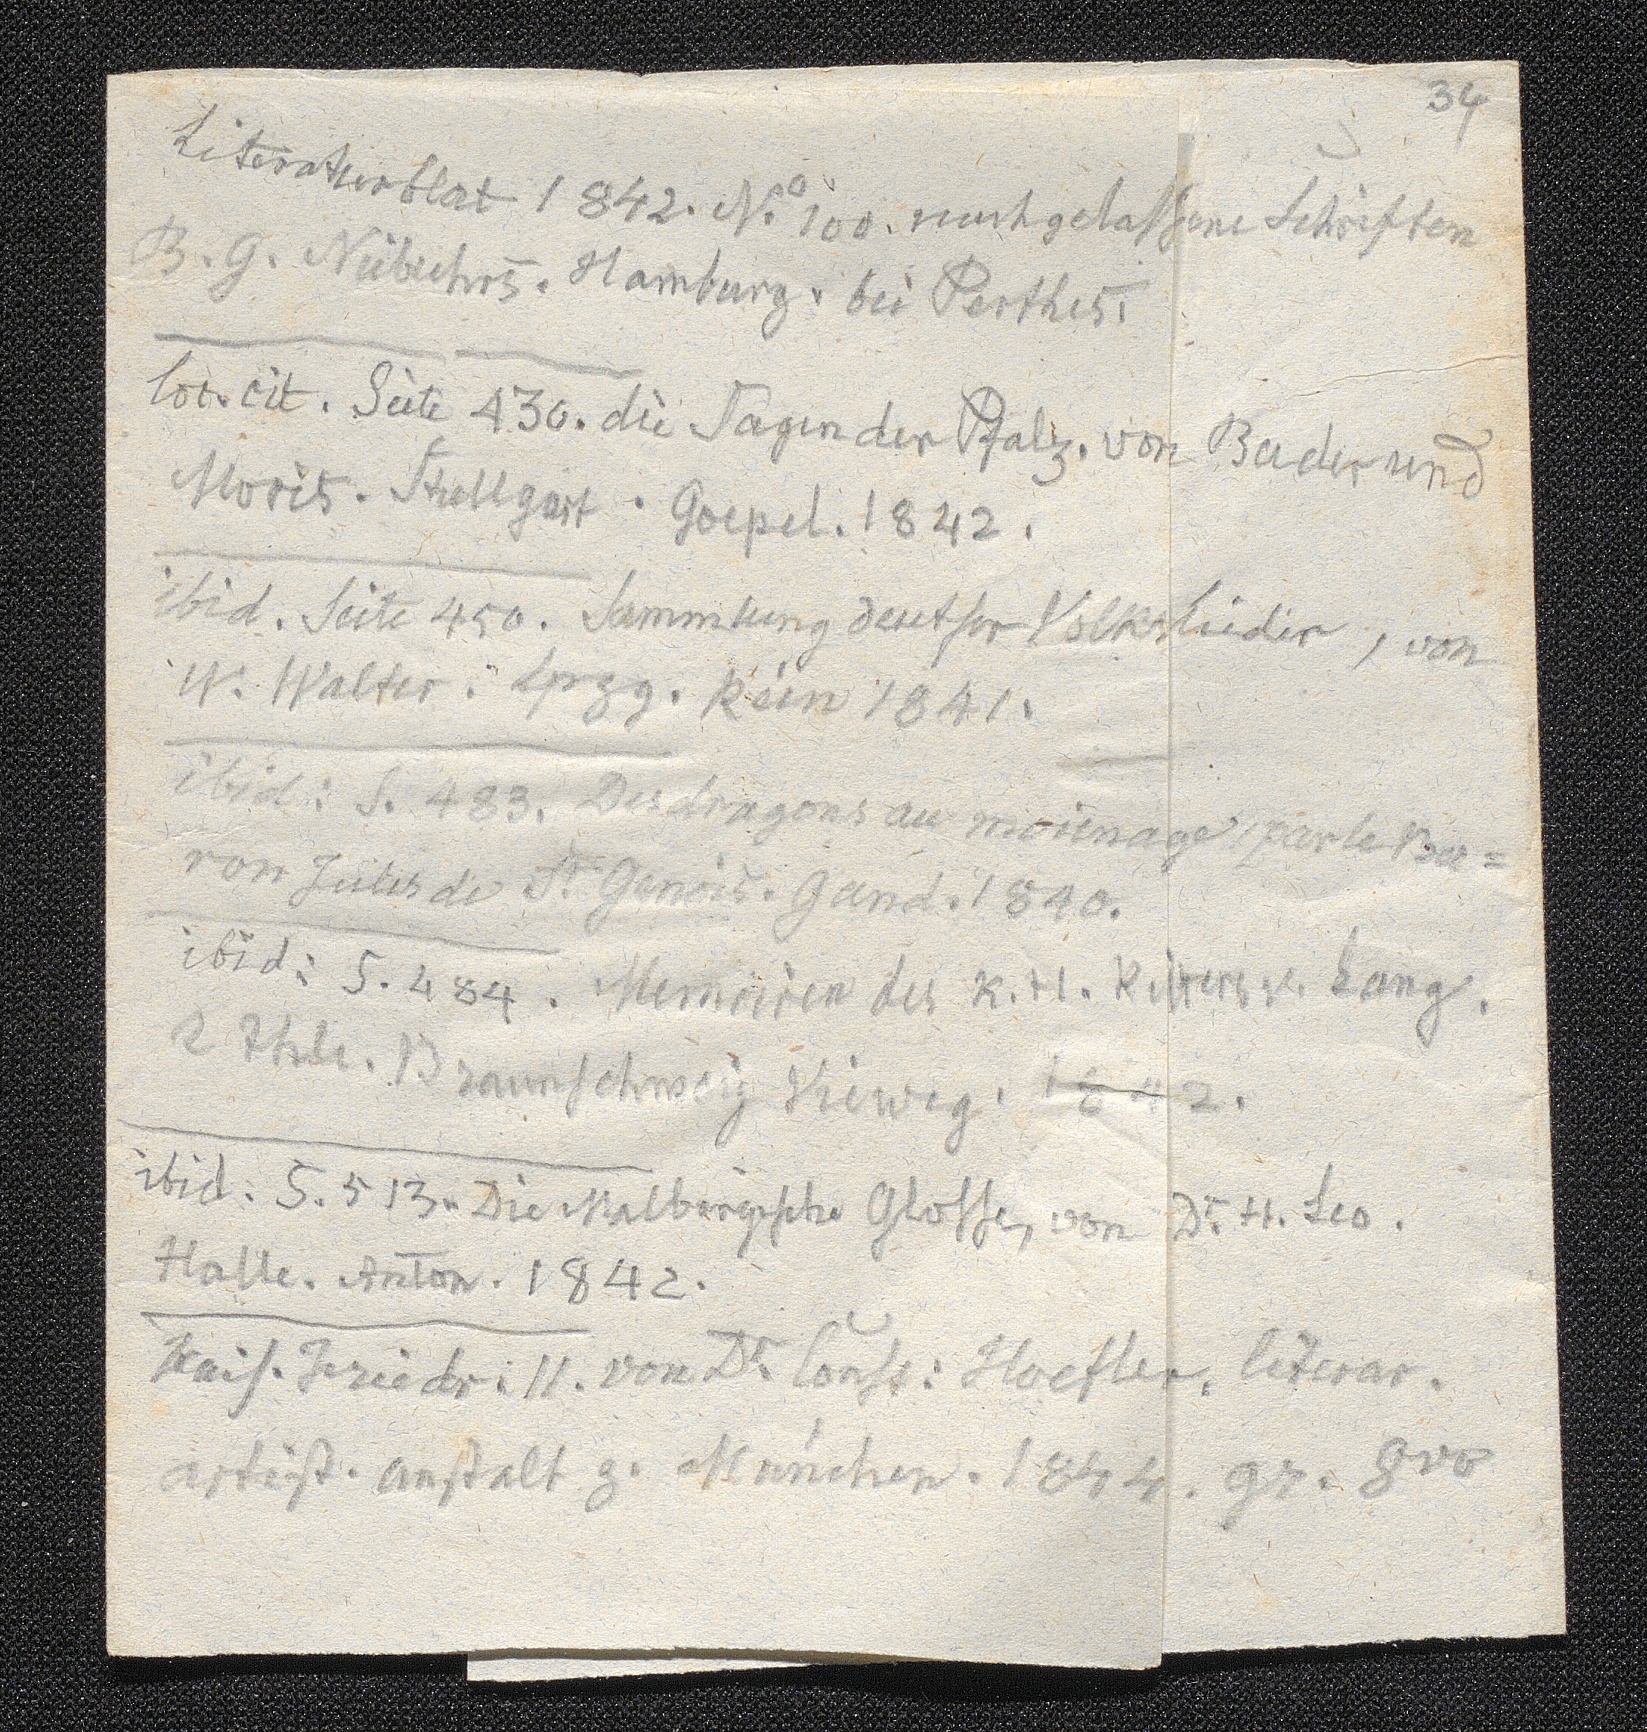 34
Literaturblat 1842. No. 100. nachgelassene Schriften
B. G. Niebuhrs. Hamburg. bei Perthes.
loc. cit. Seite 430. die Sagen der Pfalz. von Bader und
Moris. Stuttgart. Goepel. 1842.
ibid. Seite 450. Sammlung deutscher Volkslieder, von
W. Walter. Lpzg. Rein 1841.
ibid: S. 483. Des dragons au moienage, par le Ba=
ron Jules de St Genois. Gand. 1840.
ibid: S. 484. Memoiren des K. H. Ritters v. Lang.
2 Thle. Braunschweig Vieweg. 1842.
ibid. S. 513. Die Malbergische Glosse, von Dr. H. Leo.
Halle. Anton. 1842.
Kais. Friedr: II. von Dr. Const: Hoefler. literar.
artist. anstalt z. München. 1844. gr. 8vo